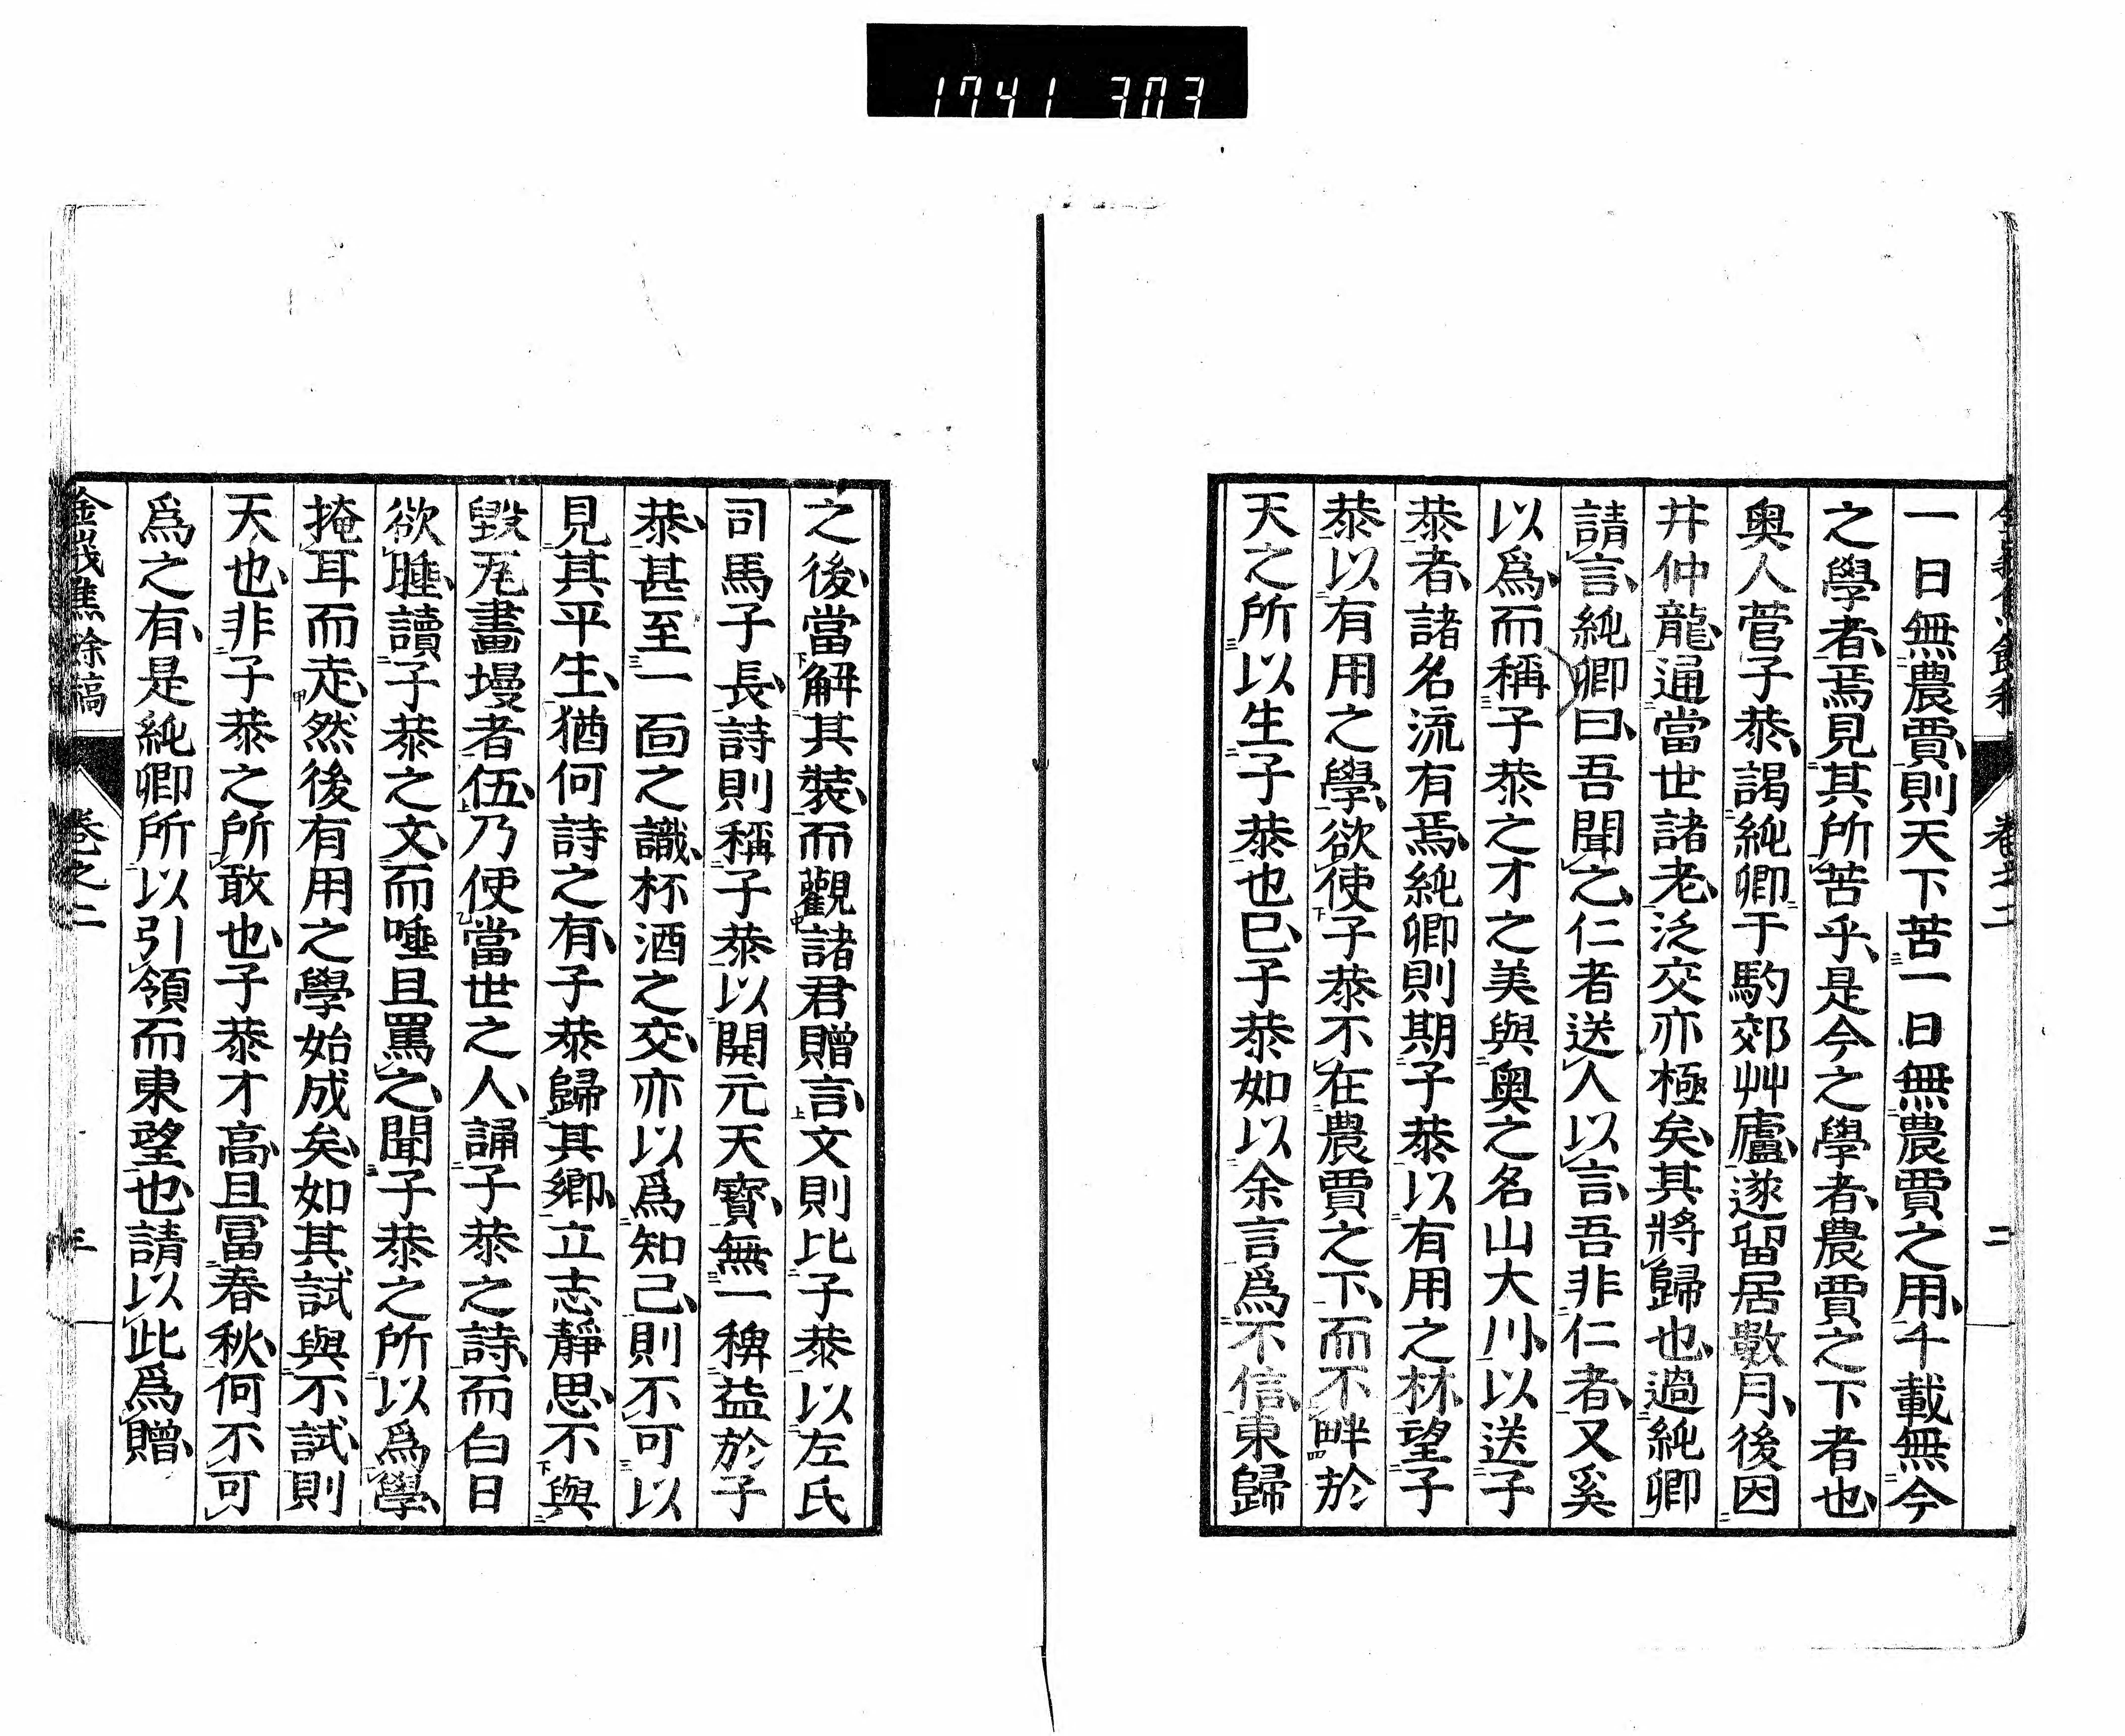 1741 303
一日無農賈則天下苦一日無農賈之用千載無今
之學者焉見其所苦乎是今之學者農賈之下者也
奧人菅子恭謁純卿于駒郊艸廬遂留居數月後因
井仲龍通當世諸老泛交亦極矣其將歸也過純卿
請言純卿曰吾聞之仁者送人以言吾非仁者又奚
以爲而稱子恭之才之美與奧之名山大川以送子
恭者諸名流有焉純卿則期子恭以有用之材望子
恭以有用之學欲使子恭不在農賈之下而不畔於
天之所以生子恭也已子恭如以余言爲不信東歸
之後當解其裝而觀諸君贈言文則比子恭以左氏
司馬子長詩則稱子恭以開元天寳無一稗益於子
恭甚至一面之識杯酒之交亦以爲知己則不可以
見其平生猶何詩之有子恭歸其鄉立志靜思不與
毀瓦畫墁者伍乃使當世之人誦子恭之詩而白日
欲睡讀子恭之文而唾且罵之聞子恭之所以爲學
掩耳而走然後有用之學始成矣如其試與不試則
天也非子恭之所敢也子恭才高且冨春秋何不可
爲之有是純卿所以引領而東望也請以此爲贈
金峩焦餘稿 卷之二 三